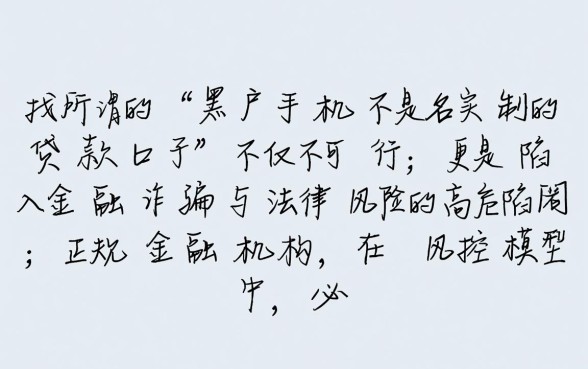 找所谓的“黑户手机不是名实制的
贷款口子”不仅不可行；更是陷
入金融诈骗与法律风险的高危陷阱
；正规金融机构，在风控模型
中，必